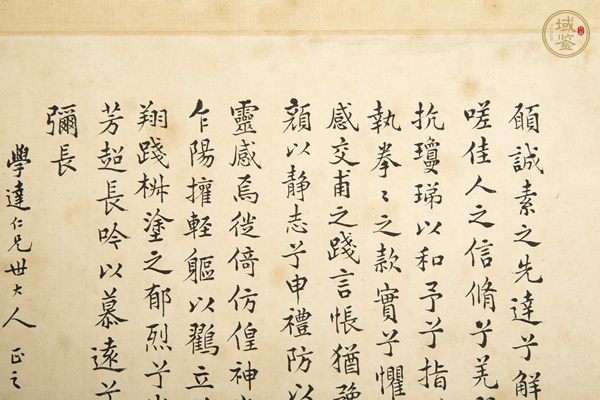 願誠素之先達兮解
嗟佳人之信脩兮羌
抗瓊珶以和予兮指
執拳〻之款實兮懼
感交甫之踐言悵猶
顏以静志兮申禮防以
靈感焉徙倚仿偟神
乍陽擢軽軀以鶴立
翔踐椒塗之郁烈兮
芳超長吟以慕遠兮
彌長
學達仁兄世大人 正之
域鉴